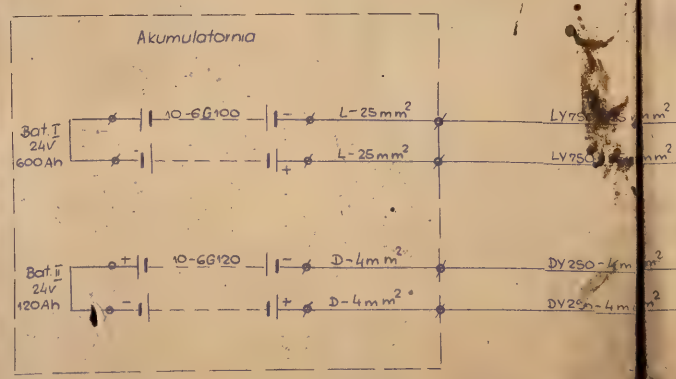 Akumulatornia
Bat. I
24V
600Ah
10-6G100
-
L-25mm²
LY750 mm²
-
+
L-25mm²
LY750 m²
Bat. II
24V
120Ah
+
10-6G120
-
D-4mm²
DY250-4mm²
-
+
D-4mm²
-4mm²